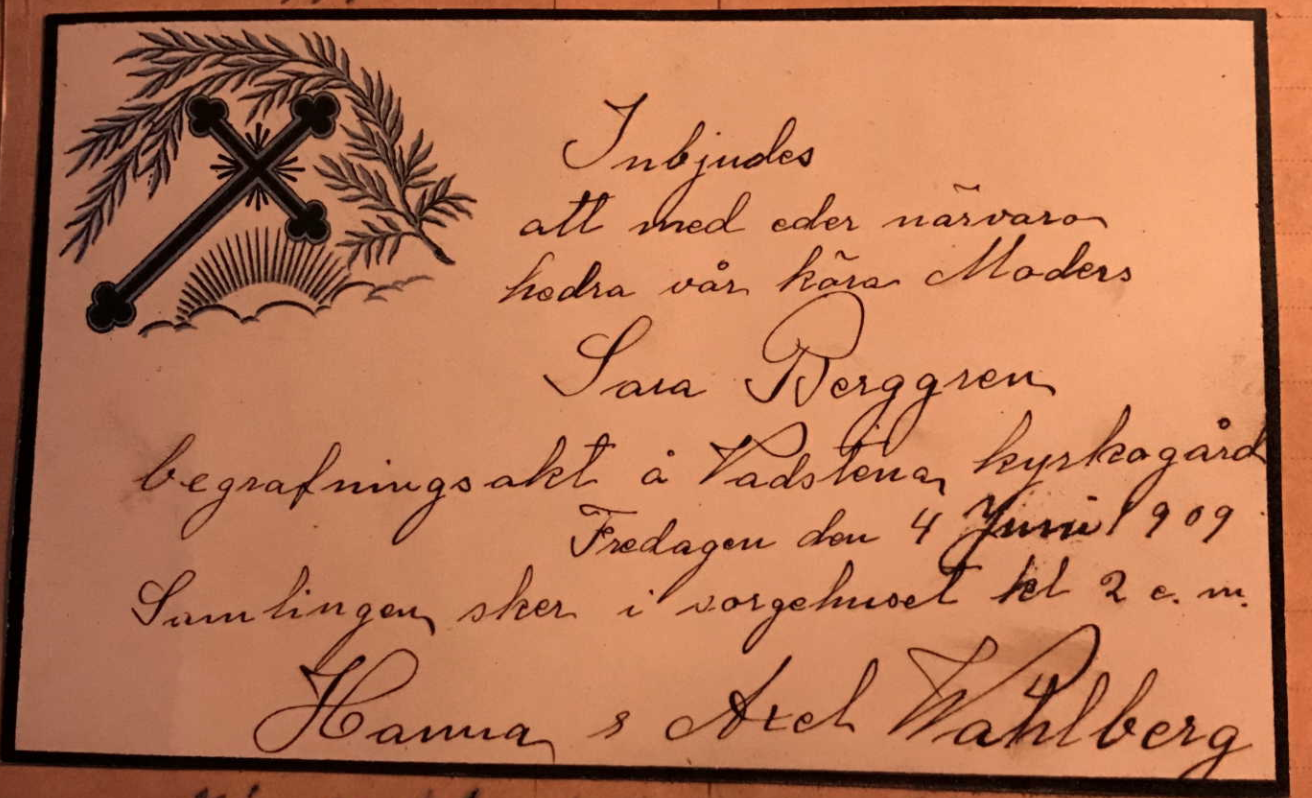 Inbjudes
att med eder närvaro
hedra vår kära Moders
Sara Berggren
begrafningsakt å Vadstena kyrkogård
Fredagen den 4 Juni 1909
Samlingen sker i sorgehuset kl 2 e. m.
Hanna & Axel Wahlberg